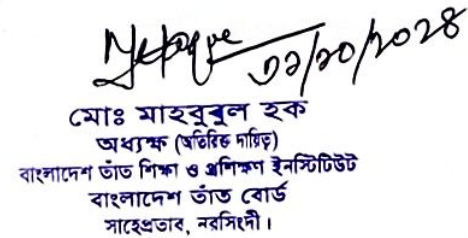 ৩১/১০/২০২৪
মোঃ মাহবুবুল হক
অধ্যক্ষ (অতিরিক্ত দায়িত্ব)
বাংলাদেশ তাঁত শিক্ষা ও প্রশিক্ষণ ইনস্টিটিউট
বাংলাদেশ তাঁত বোর্ড
সাহেপ্রতাব, নরসিংদী।